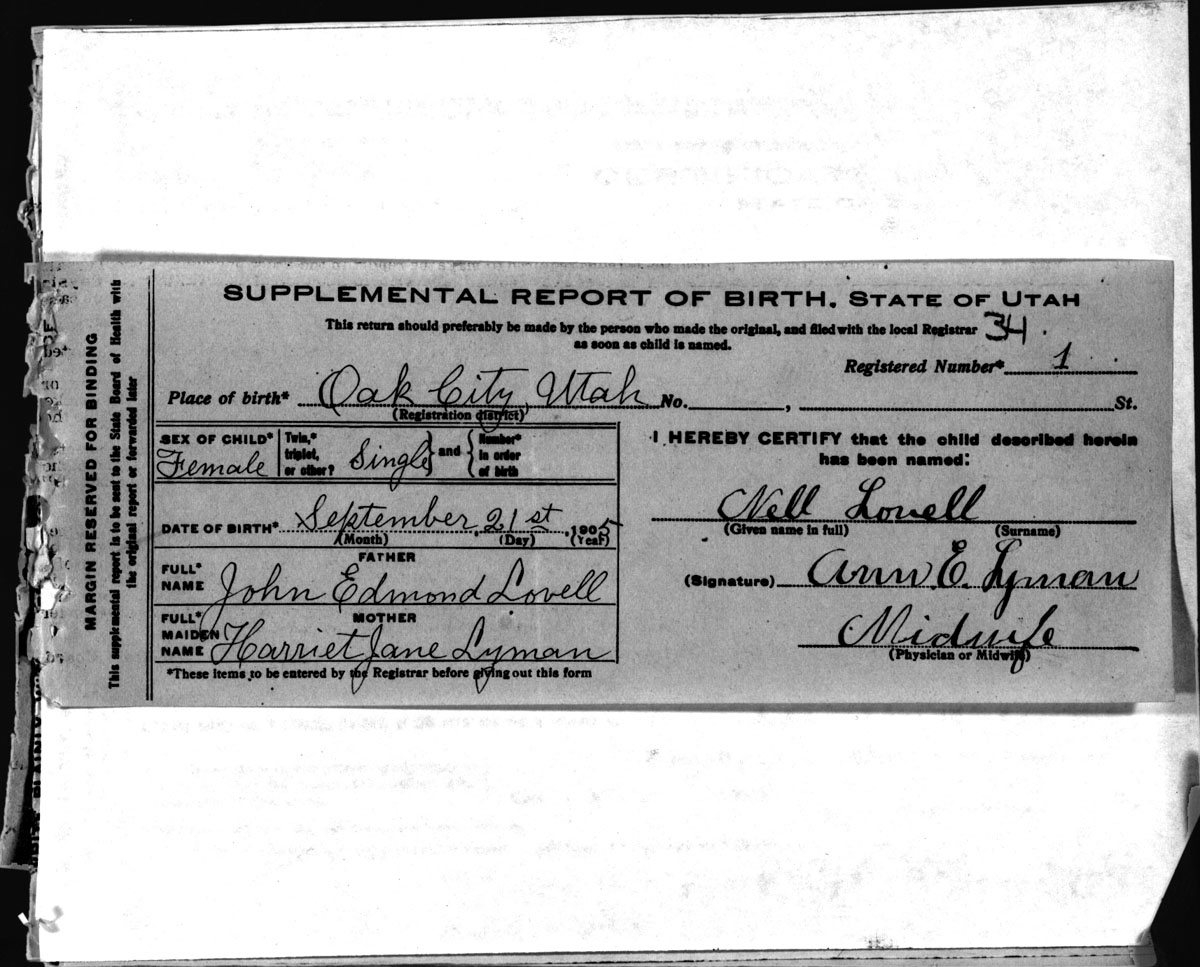 SUPPLEMENTAL REPORT OF BIRTH. STATE OF UTAH
This return should preferably be made by the person who made the original, and filed with the local Registrar
as soon as child is named.
34
Registered Number* 1
Place of birth* Oak City, Utah No. , St.
(Registration district)
SEX OF CHILD* Female
Twin,* triplet, or other? Single and Number* in order of birth
DATE OF BIRTH* September 21st, 1905
(Month) (Day) (Year)
FATHER
FULL* NAME John Edmond Lovell
MOTHER
FULL* MAIDEN NAME Harriet Jane Lyman
*These items to be entered by the Registrar before giving out this form
I HEREBY CERTIFY that the child described herein
has been named:
Nell Lovell
(Given name in full) (Surname)
(Signature) Ann E. Lyman
Midwife
(Physician or Midwife)
MARGIN RESERVED FOR BINDING
This supplemental report is to be sent to the State Board of Health with
the original report or forwarded later